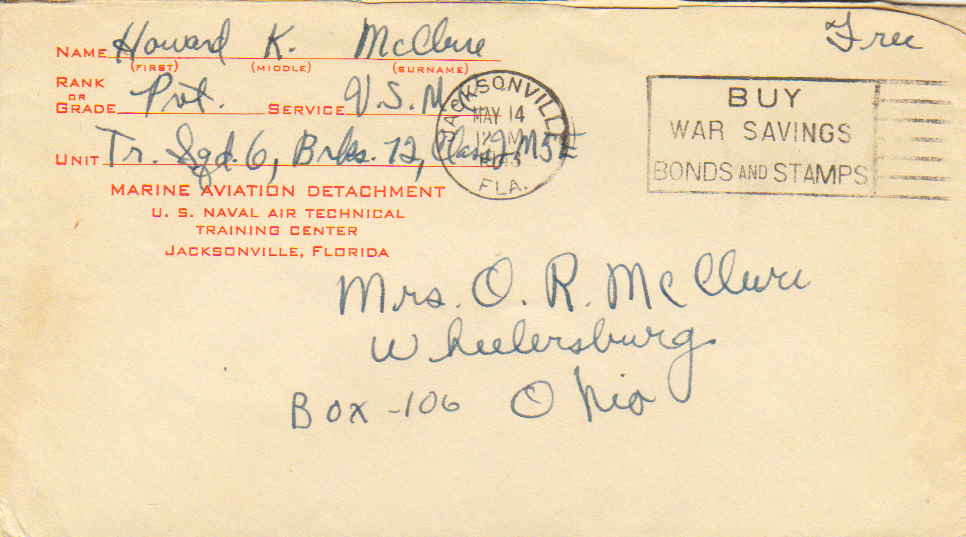 Free
NAME Howard K. McClure
(FIRST) (MIDDLE) (SURNAME)
RANK
OR
GRADE Pvt. SERVICE U.S.M.
UNIT Tr. Sqd. 6, Brks. 72, Class
MARINE AVIATION DETACHMENT
U. S. NAVAL AIR TECHNICAL
TRAINING CENTER
JACKSONVILLE, FLORIDA
JACKSONVILLE
MAY 14
FLA.
BUY
WAR SAVINGS
BONDS AND STAMPS
Mrs. O. R. McClure
Wheelersburg
Box -106 Ohio